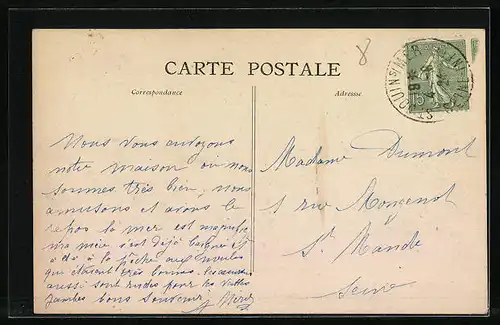 8
CARTE POSTALE
Correspondance
Adresse
15
Nous vous envoyons
notre maison où nous
sommes très bien, nous
amusons et avons le
repos la mer est magnifique
ma mère s'est déjà baignée et
a la pêche aux moules
qui étaient très bonnes.
aussi sont rudes pour les
jambes bons souvenirs
Madame Dumont
1 rue Mongenot
St Mandé
Seine